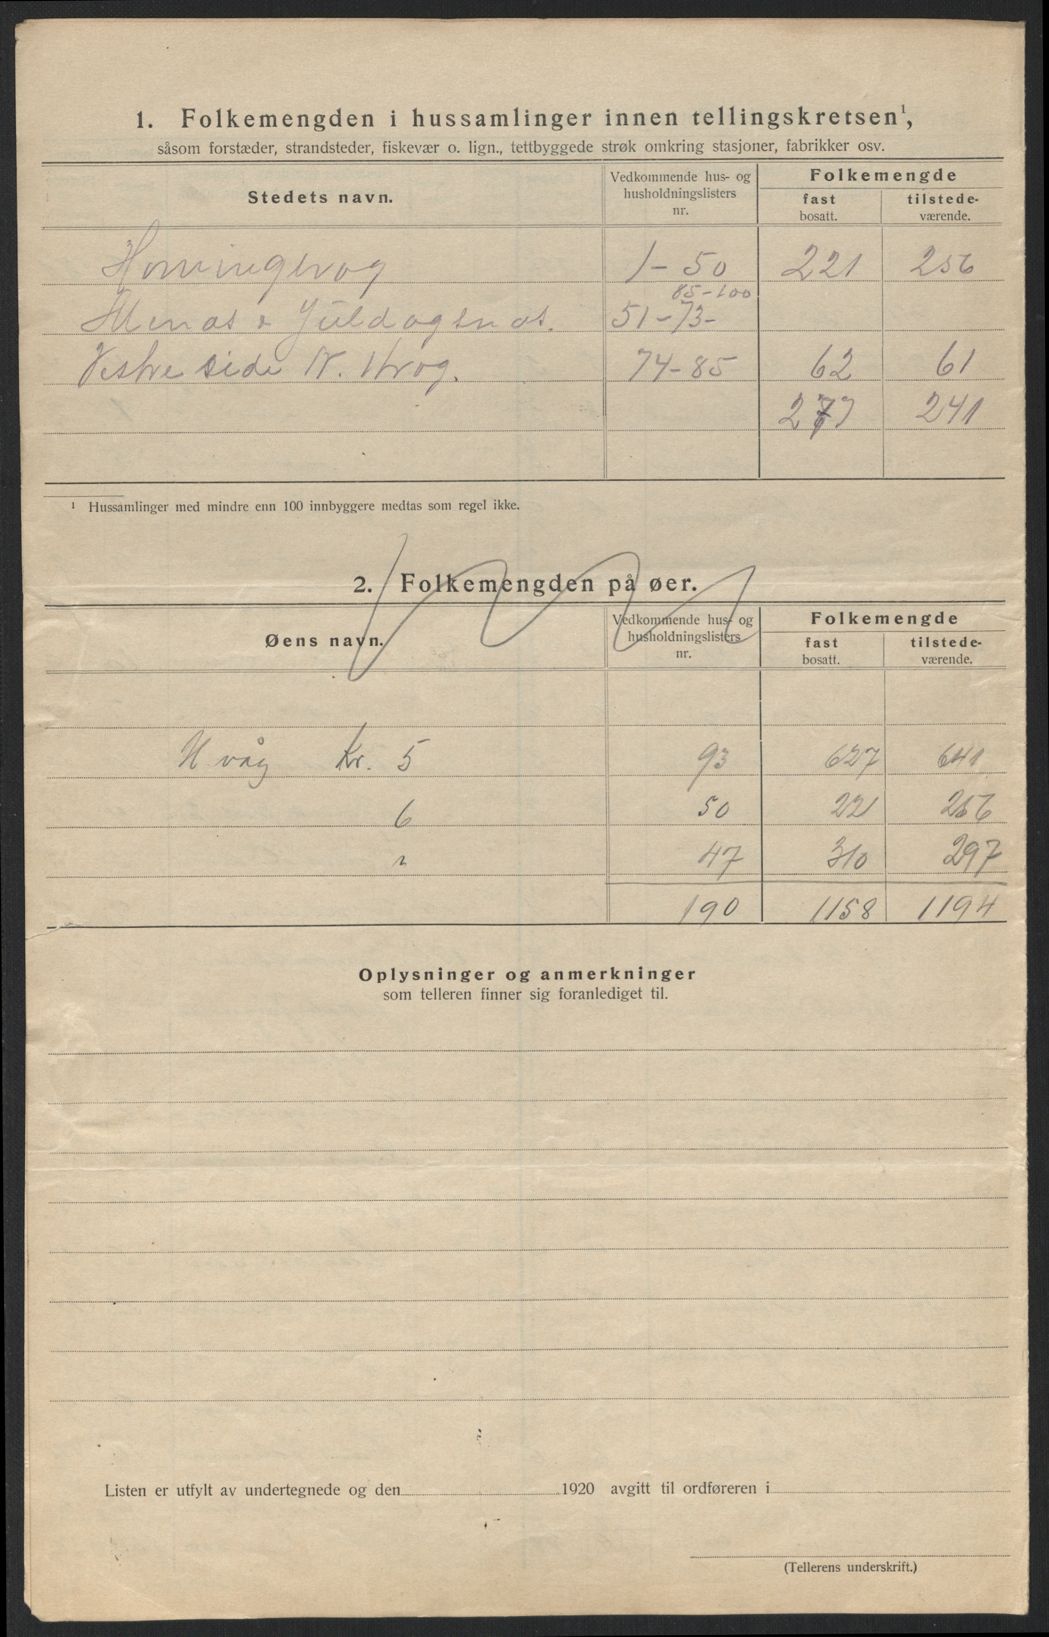 1. Folkemengden i hussamlinger innen tellingskretsen¹,
såsom forstæder, strandsteder, fiskevær o. lign., tettbyggede strøk omkring stasjoner, fabrikker osv.
Stedets navn.
Vedkommende hus- og
husholdningslisters
nr.
Folkemengde
fast
bosatt.
tilstede-
værende.
Honningsvog 1-50 221 256
85-100
51-73-
Vestre side N. 74-85 62 61
241
¹ Hussamlinger med mindre enn 100 innbyggere medtas som regel ikke.
2. Folkemengden på øer.
Øens navn.
Vedkommende hus- og
husholdningslisters
nr.
Folkemengde
fast
bosatt.
tilstede-
værende.
H våg Kr. 5 93 627 641
6 50 221 256
" 47 310 297
190 1158 1194
Oplysninger og anmerkninger
som telleren finner sig foranlediget til.
Listen er utfylt av undertegnede og den 1920 avgitt til ordføreren i
(Tellerens underskrift.)